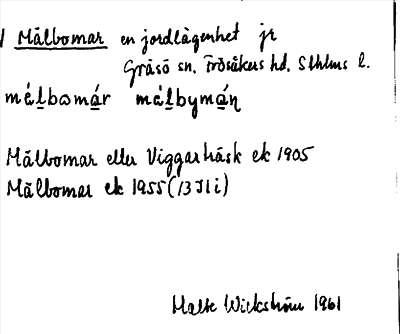 1 Målbomar en jordlägenhet jr
Gräsö sn. Frösåkers hd. Sthlms l.
målbomár målbymáṇ
Målbomar eller Viggarträsk ek 1905
Målbomar ek 1955 (13 I 1 i)
Malte Wickström 1961